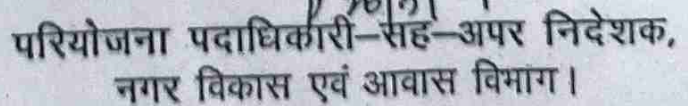 परियोजना पदाधिकारी–सह–अपर निदेशक,
नगर विकास एवं आवास विभाग।